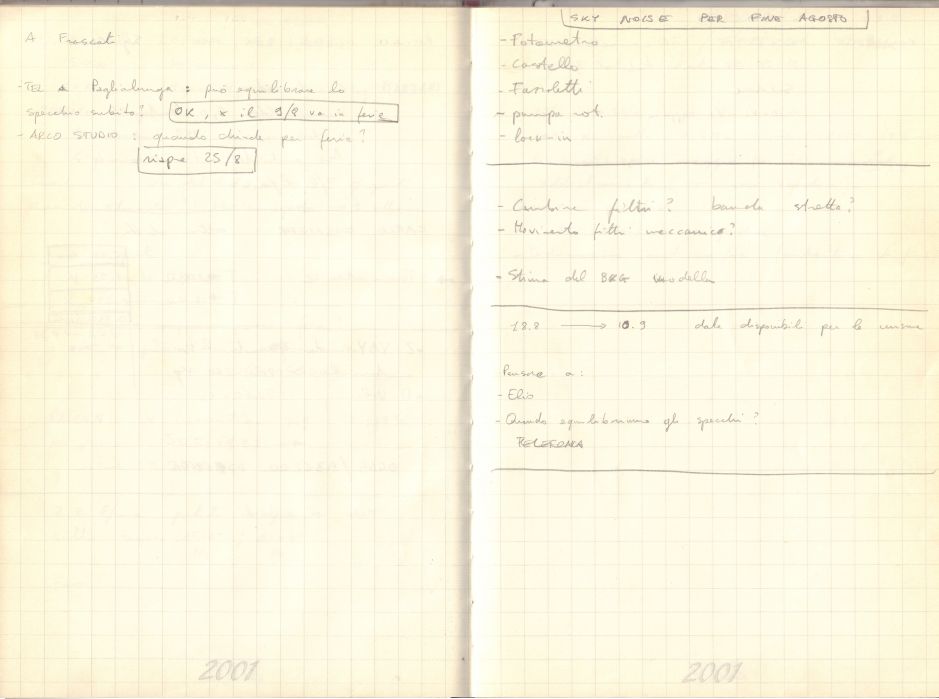 A Frascati
- TEL A Paglialunga : può equilibrare lo
specchio subito? OK, x il 9/8 va in ferie
- ARCO STUDIO : quando chiude per ferie?
riapre 25/8
2001
SKY NOISE PER FINE AGOSTO
- Fotometro
- Castello
- Farioletti
- pompa rot.
- lock-in
- Cambiare filtri? banda stretta?
- Movimento filtri meccanico?
- Stima del BKG modello
18.8 → 10.9 date disponibili per le misure
Pensare a:
- Elio
- Quando equilibriamo gli specchi?
TELEFONA
2001